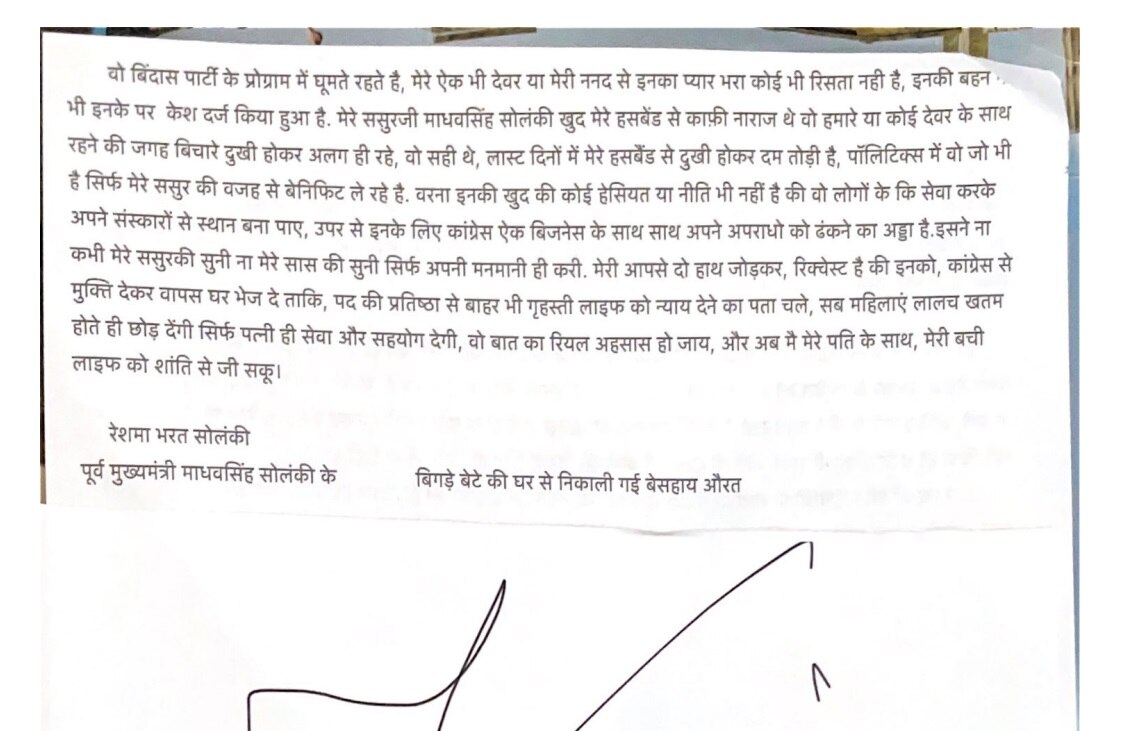 वो बिंदास पार्टी के प्रोग्राम में घूमते रहते है, मेरे ऐक भी देवर या मेरी ननद से इनका प्यार भरा कोई भी रिसता नही है, इनकी बहन
भी इनके पर केश दर्ज किया हुआ है. मेरे ससुरजी माधवसिंह सोलंकी खुद मेरे हसबेंड से काफ़ी नाराज थे वो हमारे या कोई देवर के साथ
रहने की जगह बिचारे दुखी होकर अलग ही रहे, वो सही थे, लास्ट दिनों में मेरे हसबैंड से दुखी होकर दम तोड़ी है, पॉलिटिक्स में वो जो भी
है सिर्फ मेरे ससुर की वजह से बेनिफिट ले रहे है. वरना इनकी खुद की कोई हेसियत या नीति भी नहीं है की वो लोगों के कि सेवा करके
अपने संस्कारों से स्थान बना पाए, उपर से इनके लिए कांग्रेस ऐक बिजनेस के साथ साथ अपने अपराधो को ढंकने का अड्डा है.इसने ना
कभी मेरे ससुरकी सुनी ना मेरे सास की सुनी सिर्फ अपनी मनमानी ही करी. मेरी आपसे दो हाथ जोड़कर, रिक्वेस्ट है की इनको, कांग्रेस से
मुक्ति देकर वापस घर भेज दे ताकि, पद की प्रतिष्ठा से बाहर भी गृहस्ती लाइफ को न्याय देने का पता चले, सब महिलाएं लालच खतम
होते ही छोड़ देंगी सिर्फ पत्नी ही सेवा और सहयोग देगी, वो बात का रियल अहसास हो जाय, और अब मै मेरे पति के साथ, मेरी बची
लाइफ को शांति से जी सकू।
रेशमा भरत सोलंकी
पूर्व मुख्यमंत्री माधवसिंह सोलंकी के बिगड़े बेटे की घर से निकाली गई बेसहाय औरत